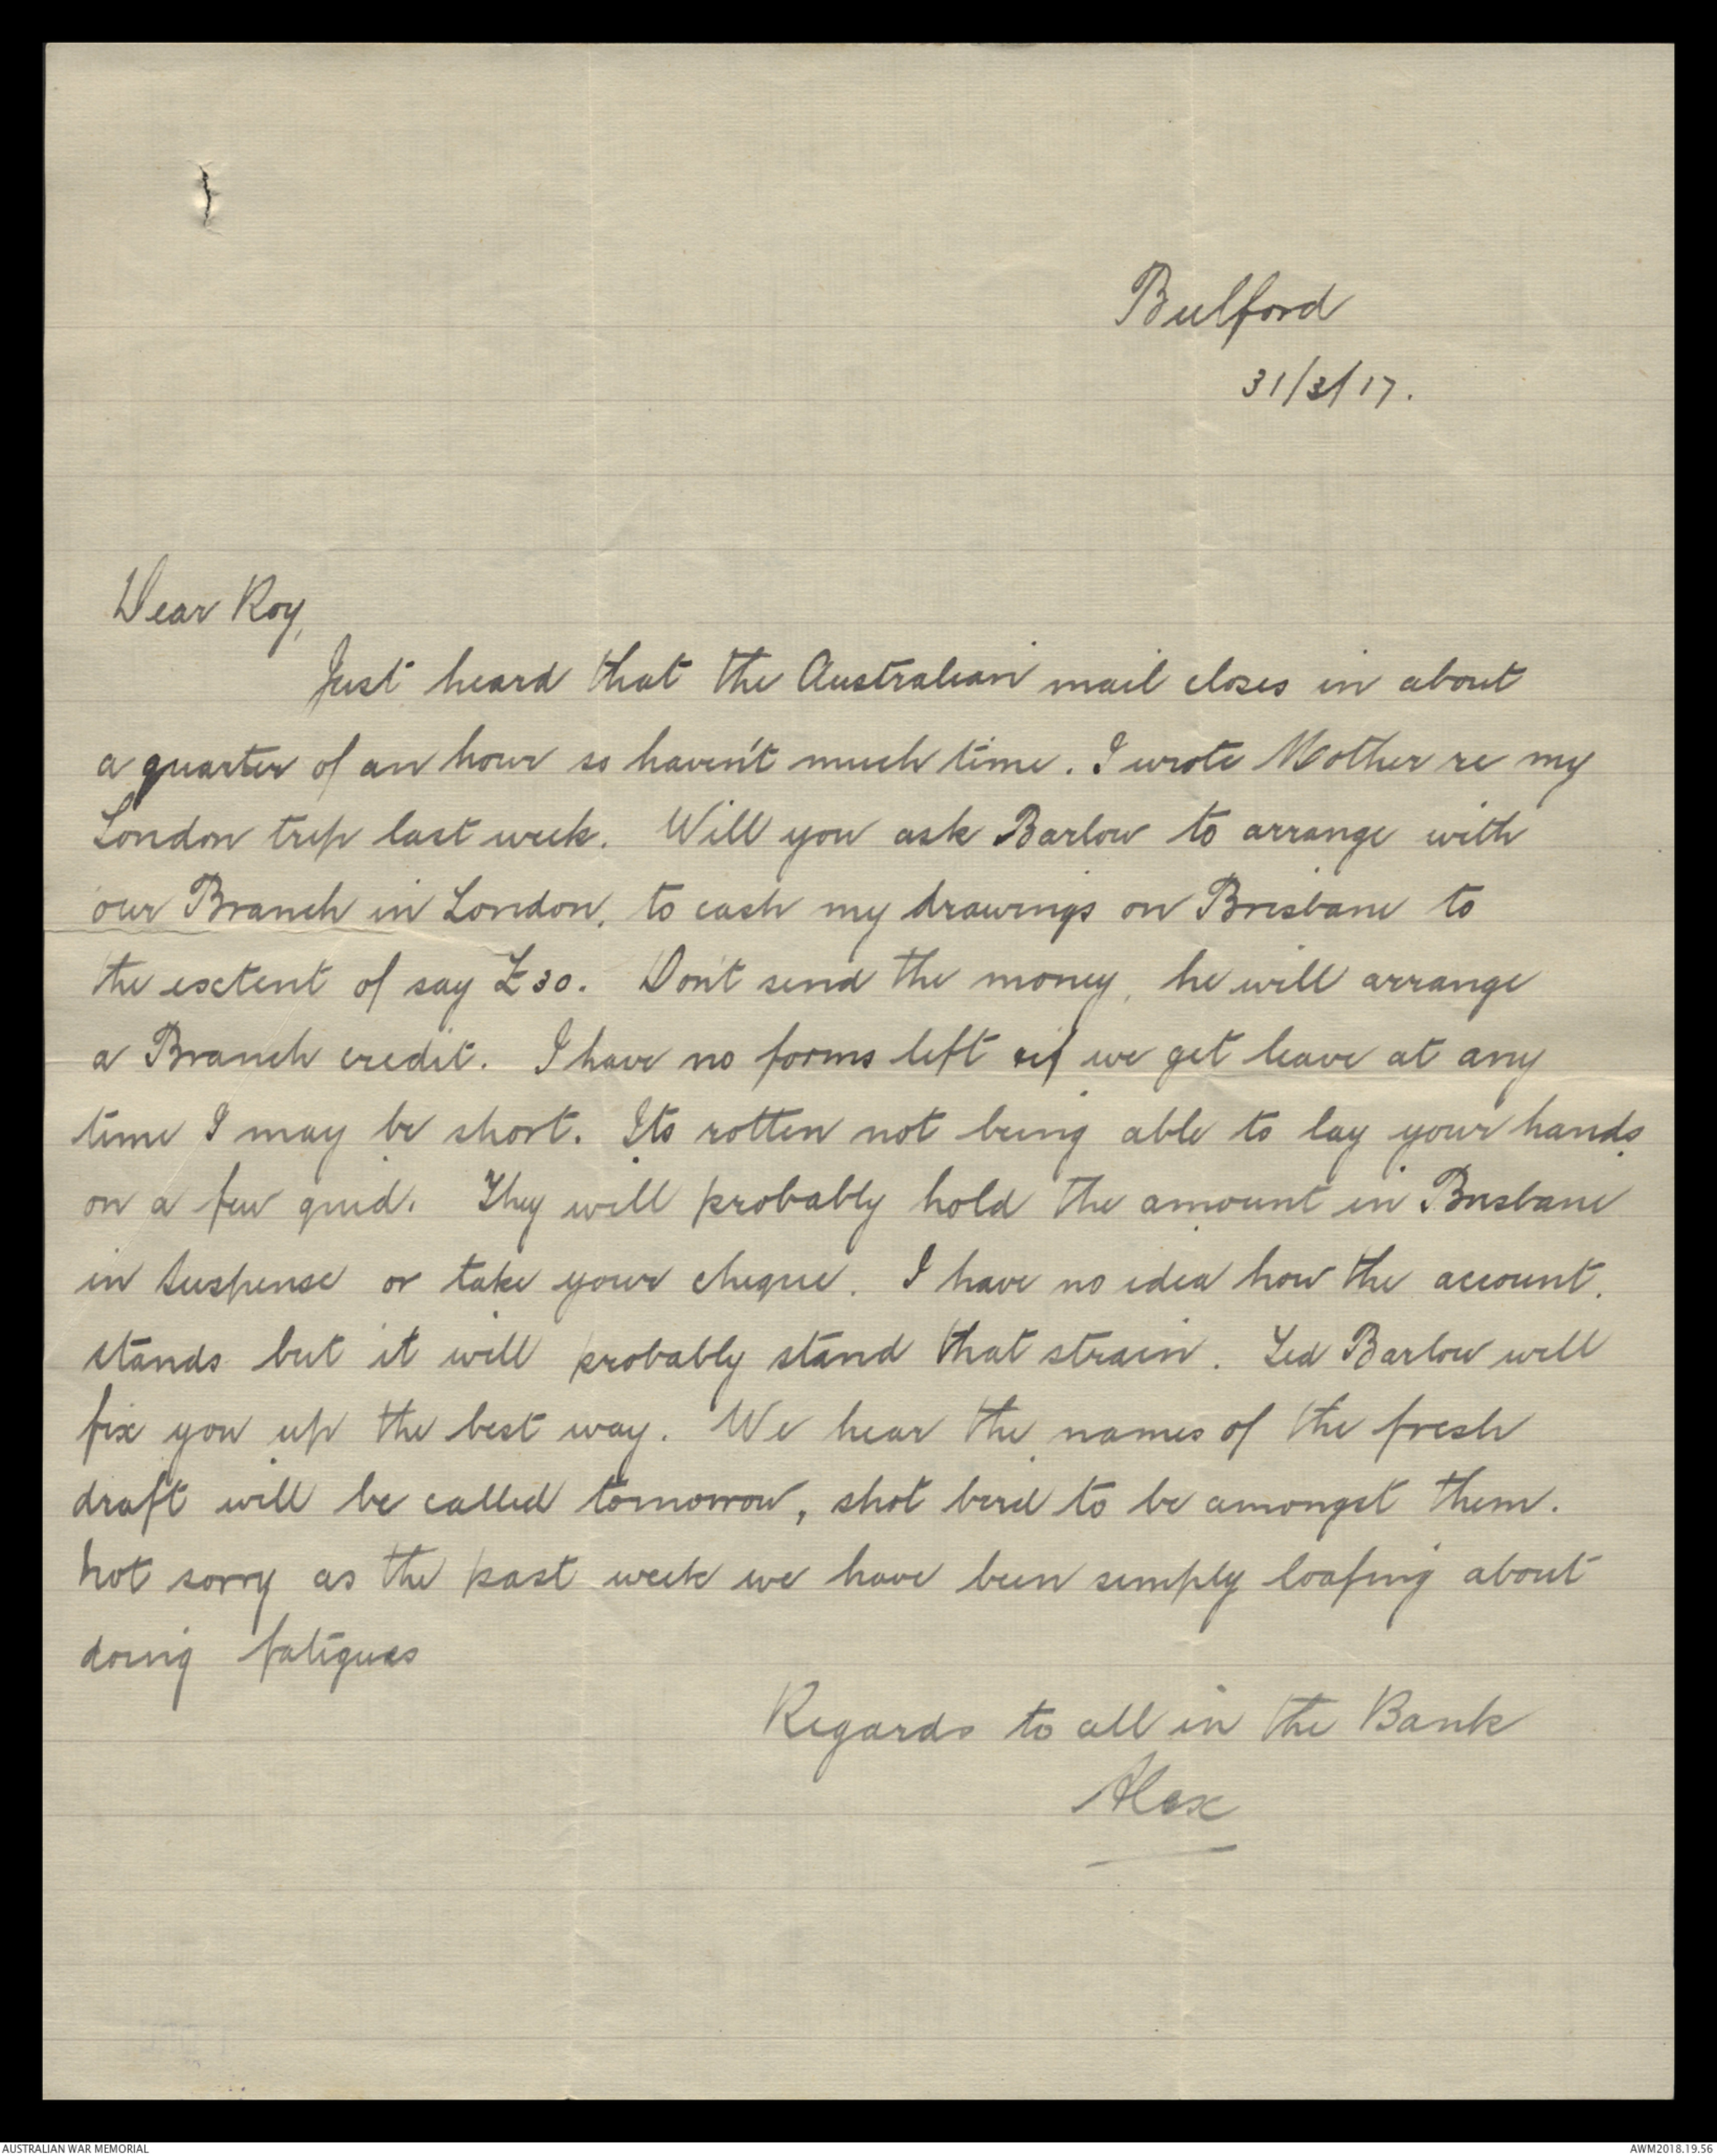 Bulford
31/3/17.
Dear Roy,
Just heard that the Australian mail closes in about
a quarter of an hour so haven't much time. I wrote Mother re my
London trip last week. Will you ask Barlow to arrange with
our Branch in London, to cash my drawings on Brisbane to
the extent of say £30. Don't send the money, he will arrange
a Branch credit. I have no forms left if we get leave at any
time I may be short. Its rotten not being able to lay your hands
on a few quid. They will probably hold the amount in Brisbane
in Suspense or take your cheque. I have no idea how the account.
stands but it will probably stand that strain. Ted Barlow will
fix you up the best way. We hear the names of the fresh
draft will be called tomorrow, shot bird to be amongst them.
Not sorry as the past week we have been simply loafing about
doing fatigues
Regards to all in the Bank
Alex
AUSTRALIAN WAR MEMORIAL
AWM2018.19.56